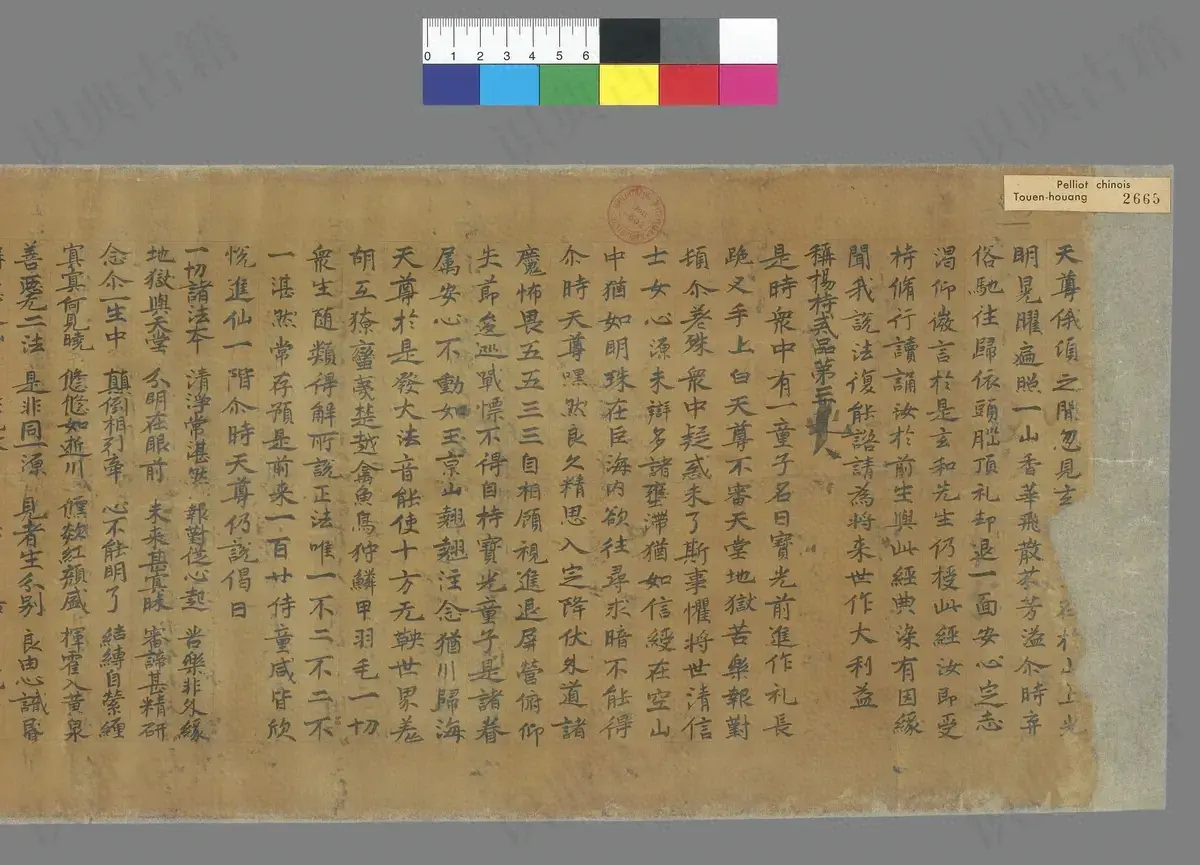 Pelliot chinois
Touen-houang 2665
0 1 2 3 4 5 6
天尊俄頃之間忽見玄
明晃曜遍照一山香華飛散芬芳溢尒時弃
俗馳往歸依頭腦頂礼却退一面安心定志
渴仰微言於是玄和先生仍授此經汝即受
持脩行讀誦汝於前生與此經典染有因緣
聞我説法復能諮請為將来世作大利益
稱楊持戒品第三
是時衆中有一童子名曰寶光前進作礼長
跪叉手上白天尊不審天堂地獄苦樂報對
頓尒差殊衆中疑惑未了斯事懼將世清信
士女心源未辯多諸壅滯猶如信綬在空山
中猶如明珠在巨海内欲往尋求暗不能得
尒時天尊嘿然良久精思入定降伏外道諸
魔怖畏五五三三自相顧視進退屏營俯仰
失莭逡巡戰慓不得自持寶光童子是諸眷
属安心不動如玉京山翹翹注念猶川歸海
天尊於是發大法音能使十方无鞅世界羌
胡互獠蠻羗楚越禽魚鳥狩鱗甲羽毛一切
衆生随類得解所説正法唯一不二不二不
一湛然常存預是前来一百廿侍童咸皆欣
悅進仙一階尒時天尊仍説偈曰
一切諸法本 清淨常湛然 報對從心起 苦樂非外緣
地獄與天堂 分明在眼前 未来甚寘昧 審諦甚精研
念尒一生中 顛倒相牽 心不能明了 結縛自縈纏
寘寘何見曉 悠悠如逝川 欻紅顏盛 揮霍入黄泉
善惡无二法 是非同一源 見者生分別 良由心識昏